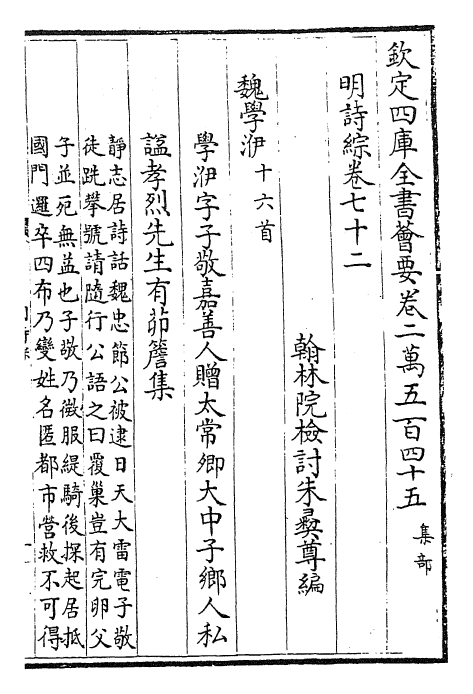 欽定四庫全書薈要卷二萬五百四十五 集部
明詩綜卷七十二
翰林院檢討朱彛尊編
魏學洢十六首
學洢字子敬嘉善人贈太常卿大中子鄉人私
諡孝烈先生有茆簷集
静志居詩話魏忠節公被逮日天大雷電子敬
徒跣攀號請隨行公語之曰覆巢豈有完卵父
子並死無益也子敬乃微服緹騎後探起居抵
國門邏卒四布乃變姓名匿都市營救不可得